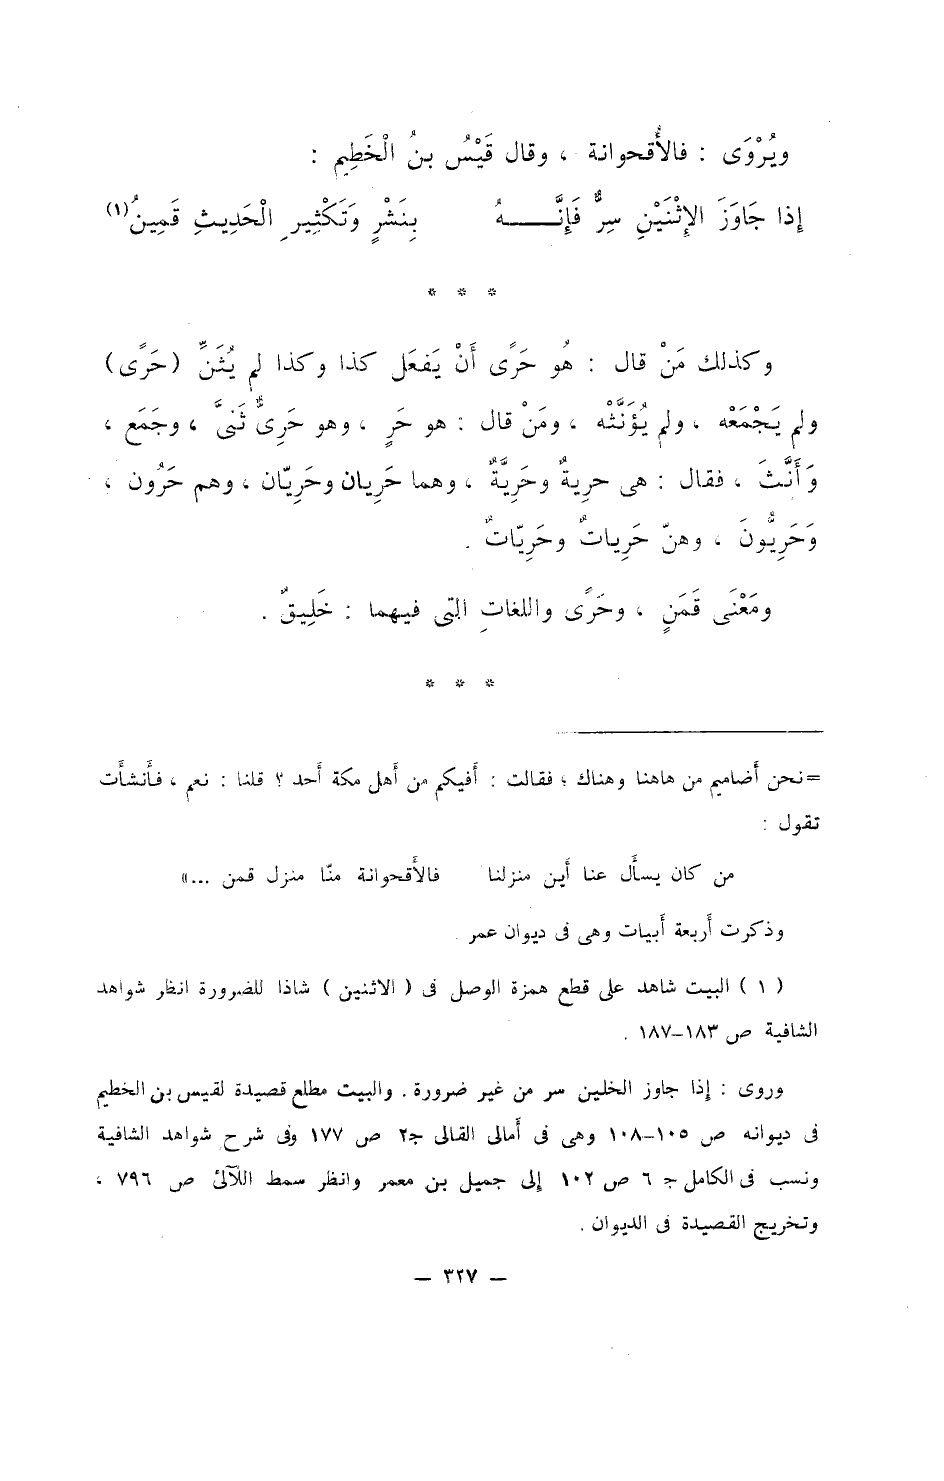 ويُرْوَى : فالأُقحوانة ، وقال قَيْسُ بنُ الْخَطِيمِ :
إذا جَاوَزَ الإثْنَيْنِ سِرٌّ فَإِنَّـــــهُ بِنَشْرٍ وَتَكْثِيرِ الْحَدِيثِ قَمِينُ(١)
* * *
وكذلك مَنْ قال : هُو حَرًى أَنْ يَفعَل كذا وكذا لم يُثَنِّ (حَرًى)
ولم يَجْمَعْه ، ولم يُؤَنِّثْه ، ومَنْ قال : هو حَرٍ ، وهو حَرِىٌّ ثَنىَّ ، وجَمَع ،
وَأَنَّثَ ، فقال : هى حرِيةٌ وحَرِيَّةٌ ، وهما حَرِيان وحَرِيّان ، وهم حَرُون ،
وَحَرِيُّونَ ، وهنّ حَرِياتٌ وحَرِيّاتٌ .
ومَعْنَى قَمَنٍ ، وحَرًى واللغاتِ التى فيهما : خَلِيقٌ .
* * *
=نحن أضاميم من هاهنا وهناك ؛ فقالت : أفيكم من أهل مكة أحد ؟ قلنا : نعم ، فأنشأت
تقول :
من كان يسأل عنا أين منزلنا فالأقحوانة منّا منزل قمن ...»
وذكرت أربعة أبيات وهى فى ديوان عمر
( ١ ) البيت شاهد على قطع همزة الوصل فى ( الاثنين ) شاذا للضرورة انظر شواهد
الشافية ص ١٨٣–١٨٧ .
وروى : إذا جاوز الخلين سر من غير ضرورة . والبيت مطلع قصيدة لقيس بن الخطيم
فى ديوانه ص ١٠٥–١٠٨ وهى فى أمالى القالى جـ٢ ص ١٧٧ وفى شرح شواهد الشافية
ونسب فى الكامل جـ ٦ ص ١٠٢ إلى جميل بن معمر وانظر سمط اللآلئ ص ٧٩٦ ،
وتخريج القصيدة فى الديوان .
— ٣٢٧ —